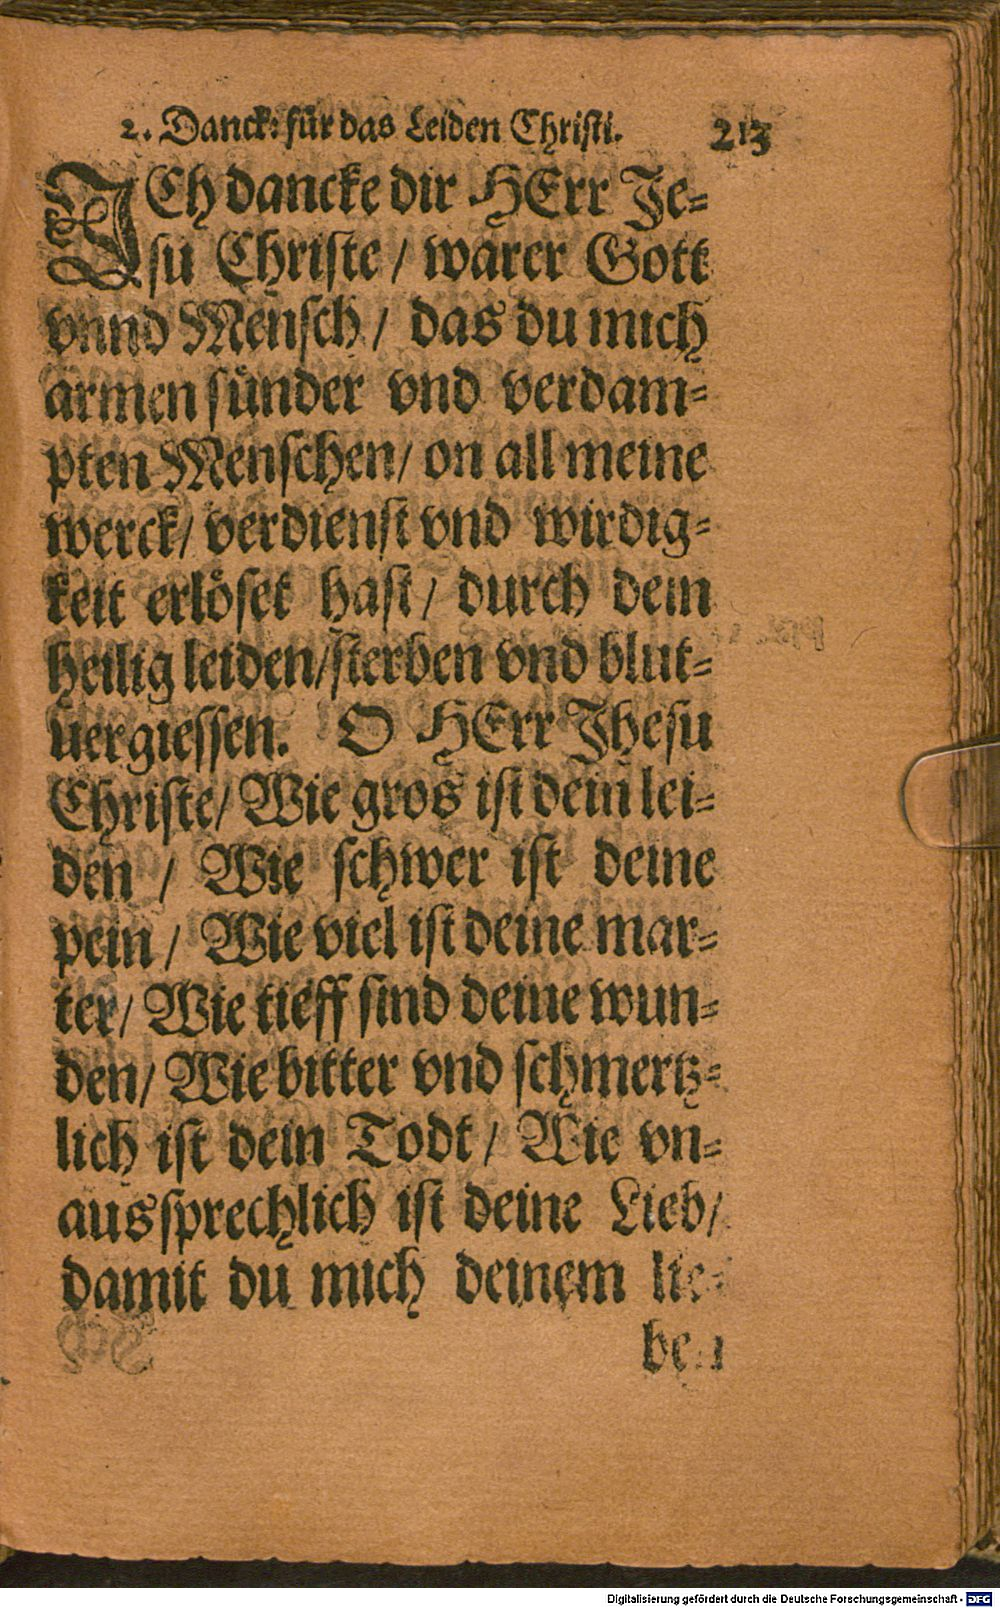 2. Danck: für das Leiden Christi. 213
ICh dancke dir HErr Je-
su Christe / warer Gott
vnnd Mensch / das du mich
armen sünder vnd verdam-
pten Menschen / on all meine
werck / verdienst vnd wirdig-
keit erlöset hast / durch dein
heilig leiden / sterben vnd blut-
uergiessen. O HErr Jhesu
Christe / Wie gros ist dein lei-
den / Wie schwer ist deine
pein / Wie viel ist deine mar-
ter / Wie tieff sind deine wun-
den / Wie bitter vnd schmertz-
lich ist dein Todt / Wie vn-
aussprechlich ist deine Lieb /
damit du mich deinem lie-
ben
Digitalisierung gefördert durch die Deutsche Forschungsgemeinschaft - DFG